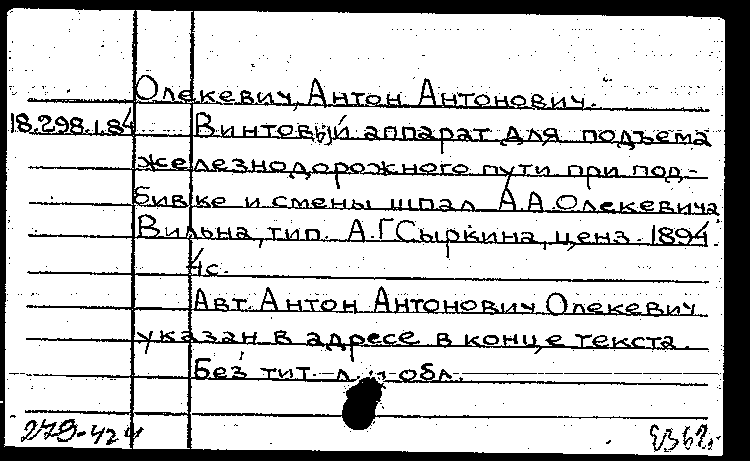 Олекевич, Антон Антонович.
18.298.1.84 Винтовый аппарат для подъема
железнодорожного пути при под-
бивке и смены шпал А.А. Олекевича.
Вильна, тип. А.Г. Сыркина, ценз. 1894.
4с.
Авт. Антон Антонович Олекевич
указан в адресе в конце текста.
Без тит. л. и обл.
279-424